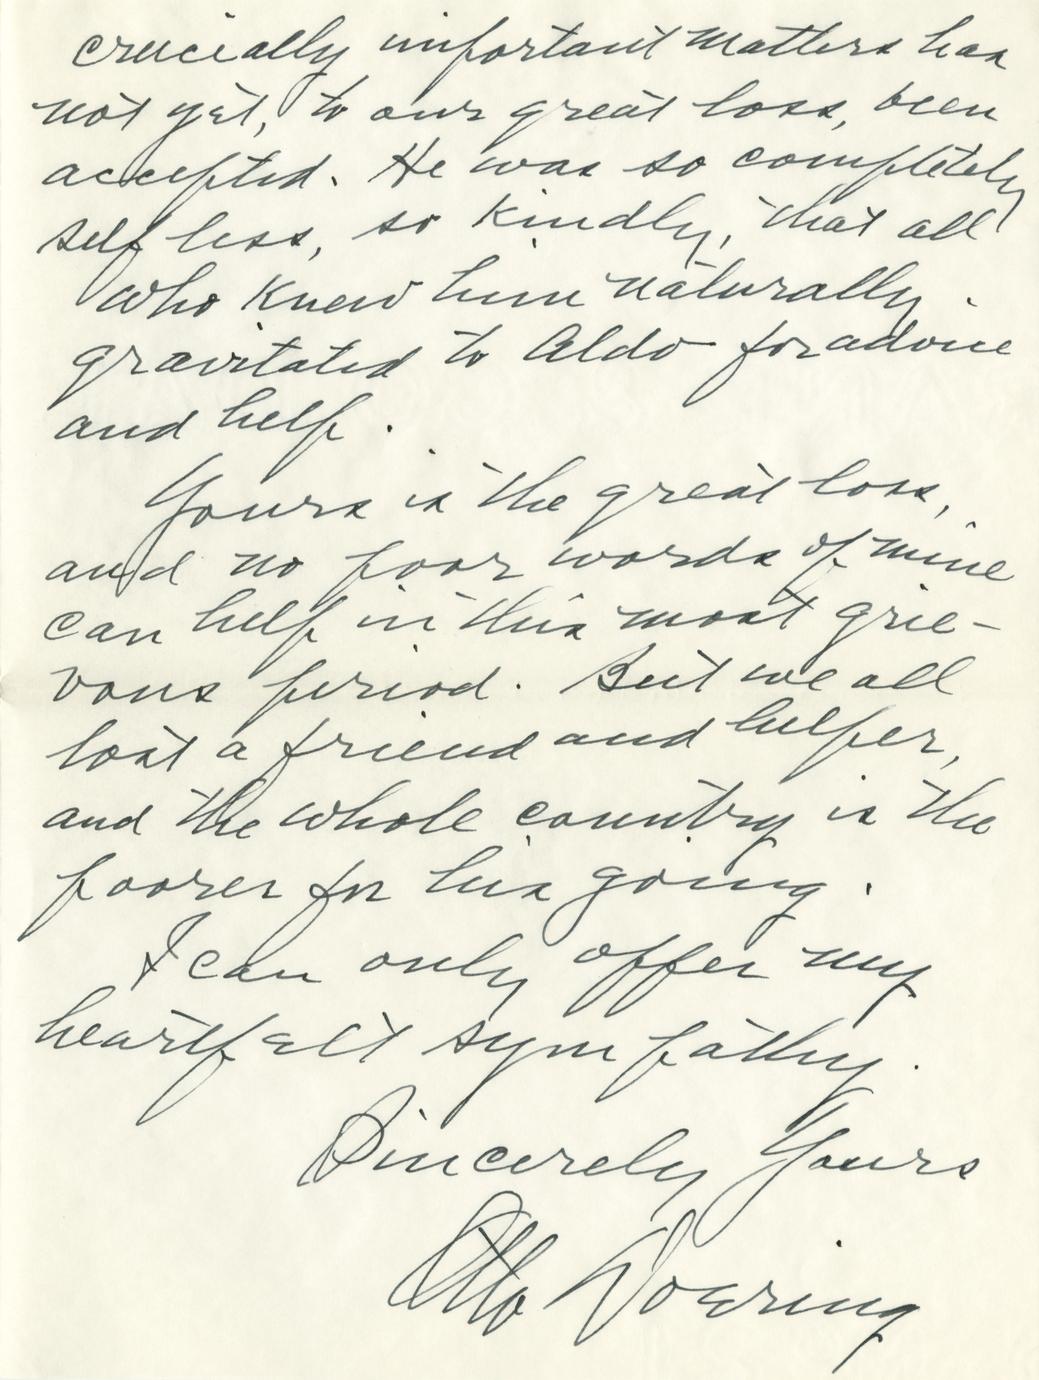 crucially important matters has
not yet, to our great loss, been
accepted. He was so completely
selfless, so kindly, that all
who knew him naturally
gravitated to Aldo for advice
and help.
Yours is the great loss,
and no poor words of mine
can help in this most grie-
vous period. But we all
lost a friend and helper,
and the whole country is the
poorer for his going.
I can only offer my
heartfelt sympathy.
Sincerely Yours
Otto Doering